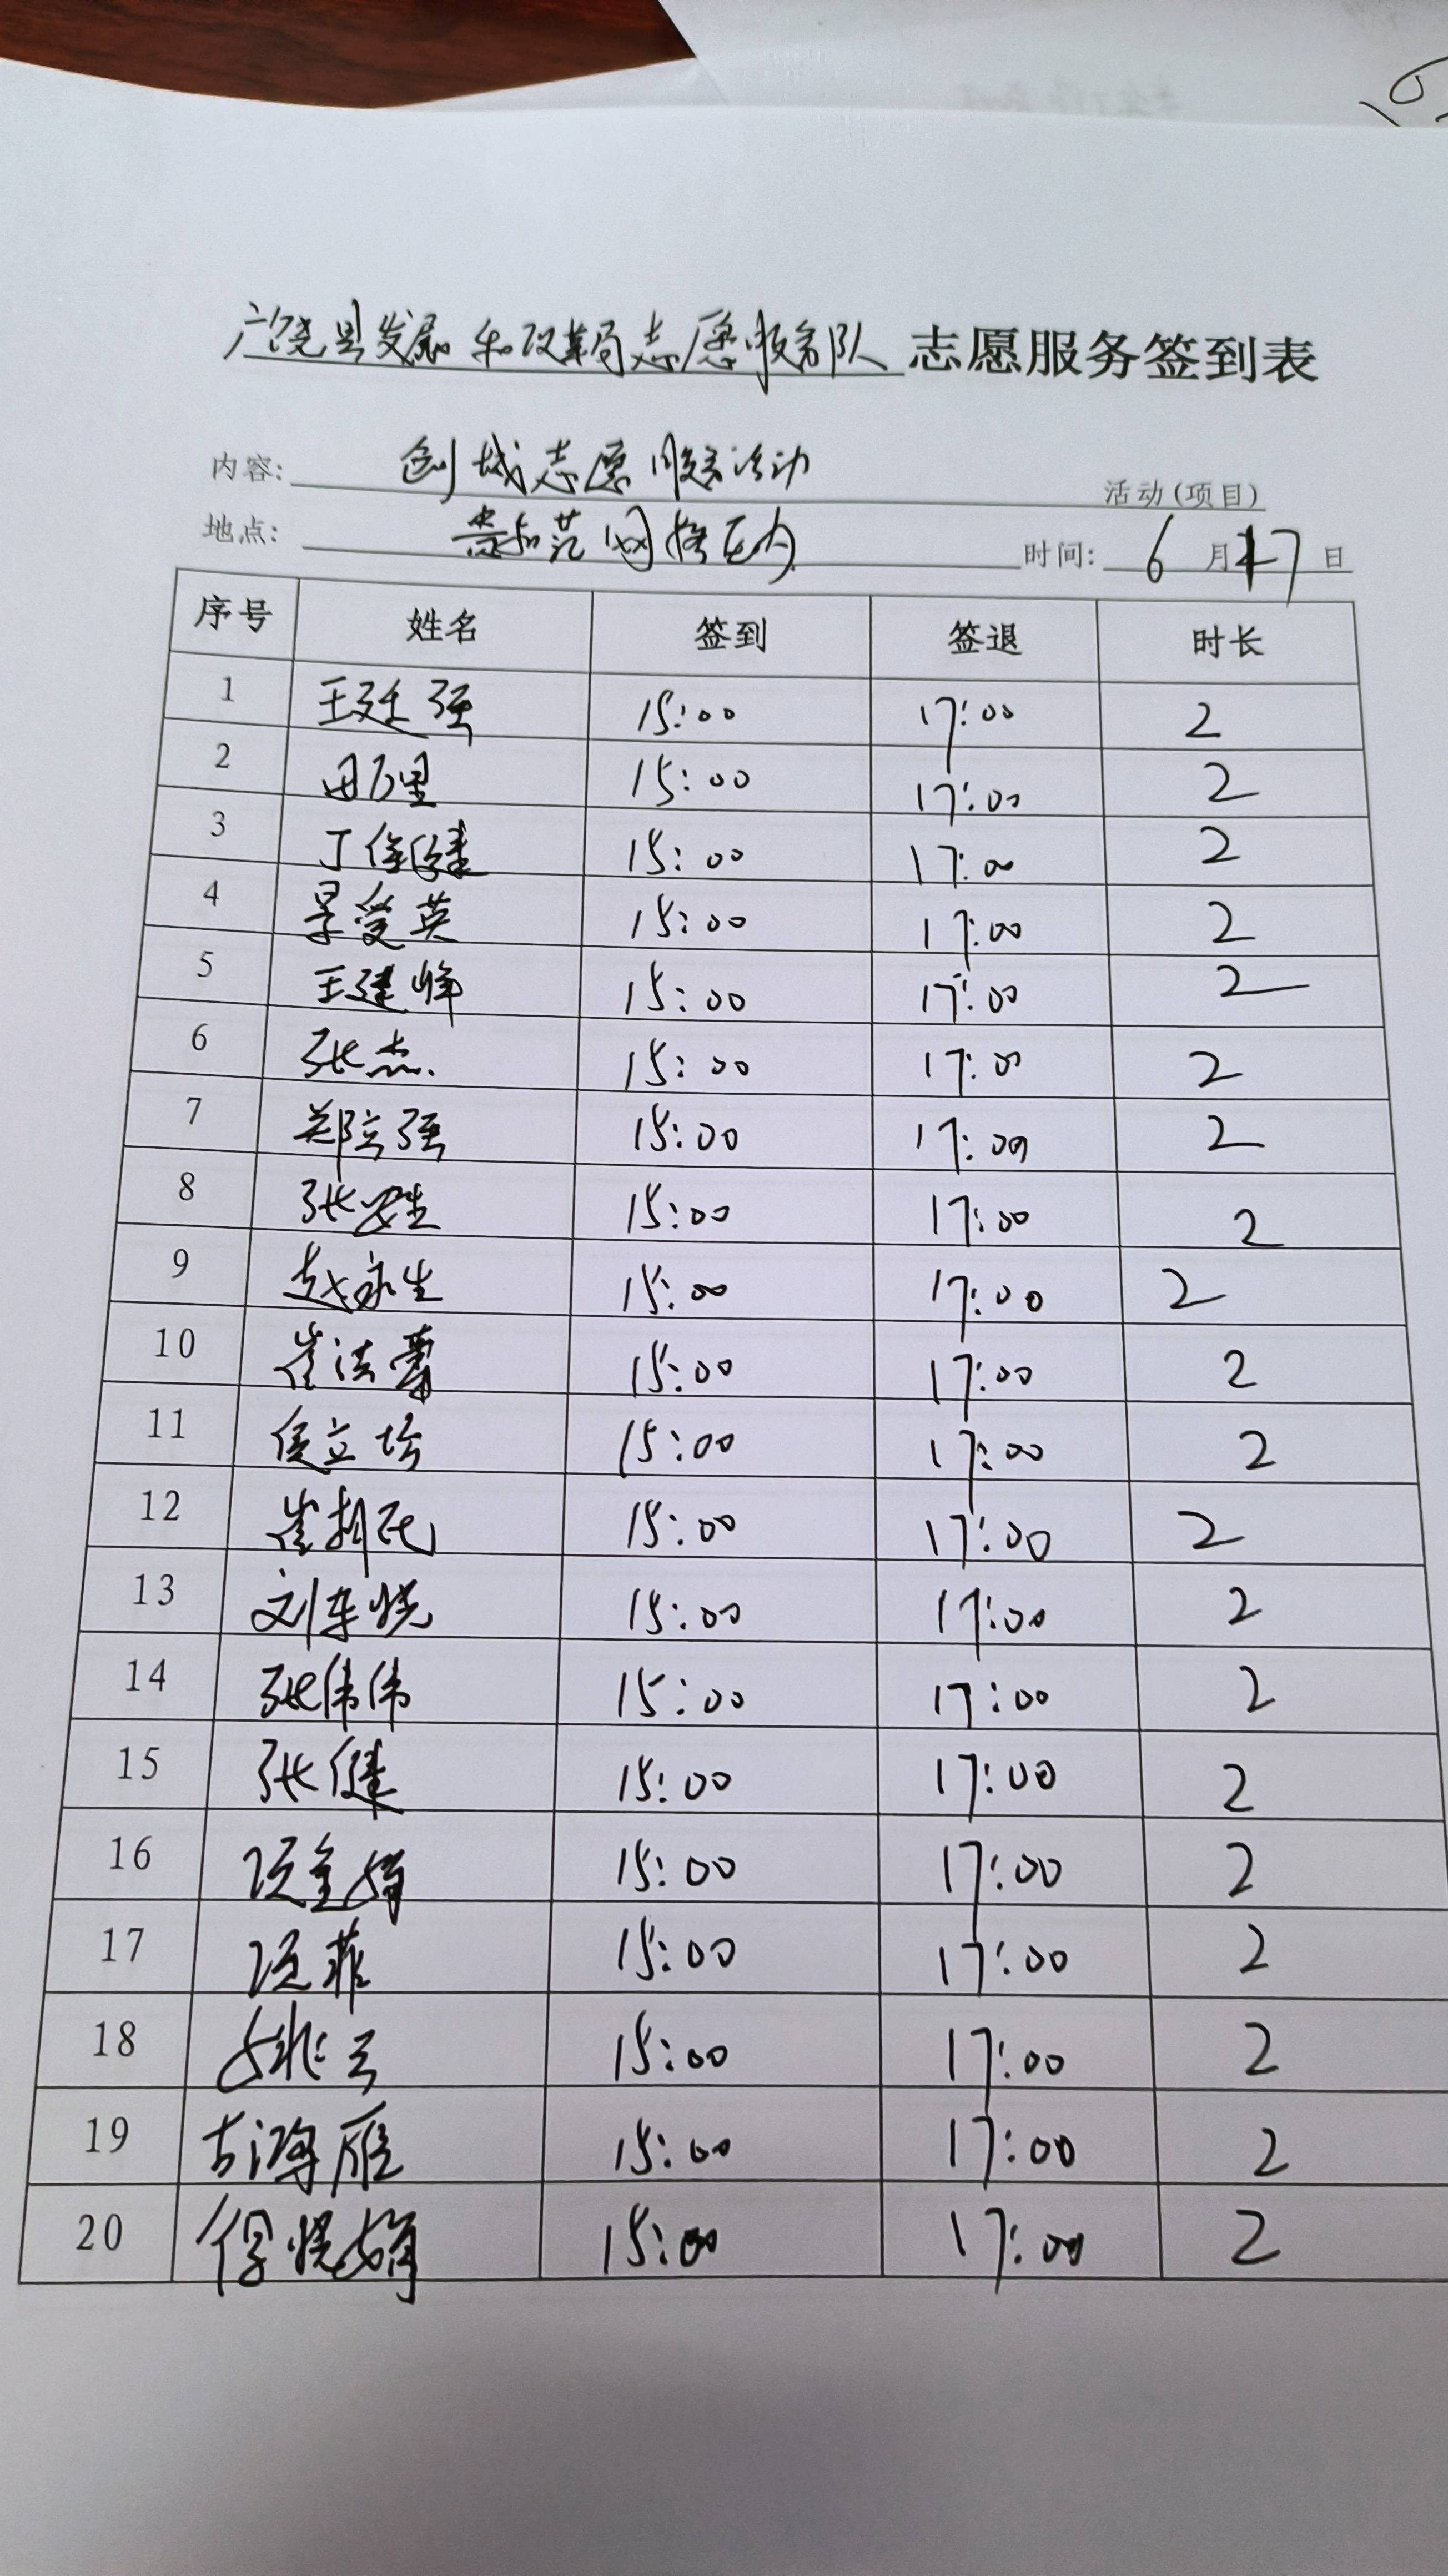 广饶县发展和改革局志愿服务队 志愿服务签到表
内容: 创城志愿服务活动 活动(项目)
地点: 网格区内 时间: 6 月 17 日
序号 姓名 签到 签退 时长
1 王廷强 15:00 17:00 2
2 田万里 15:00 17:00 2
3 丁俊健 15:00 17:00 2
4 景爱英 15:00 17:00 2
5 王建峰 15:00 17:00 2
6 张杰 15:00 17:00 2
7 郑立强 15:00 17:00 2
8 张 15:00 17:00 2
9 赵永生 15:00 17:00 2
10 崔法 15:00 17:00 2
11 侯立 15:00 17:00 2
12 崔 15:00 17:00 2
13 刘 15:00 17:00 2
14 张伟伟 15:00 17:00 2
15 张健 15:00 17:00 2
16 15:00 17:00 2
17 菲 15:00 17:00 2
18 15:00 17:00 2
19 古鸿雁 15:00 17:00 2
20 15:00 17:00 2